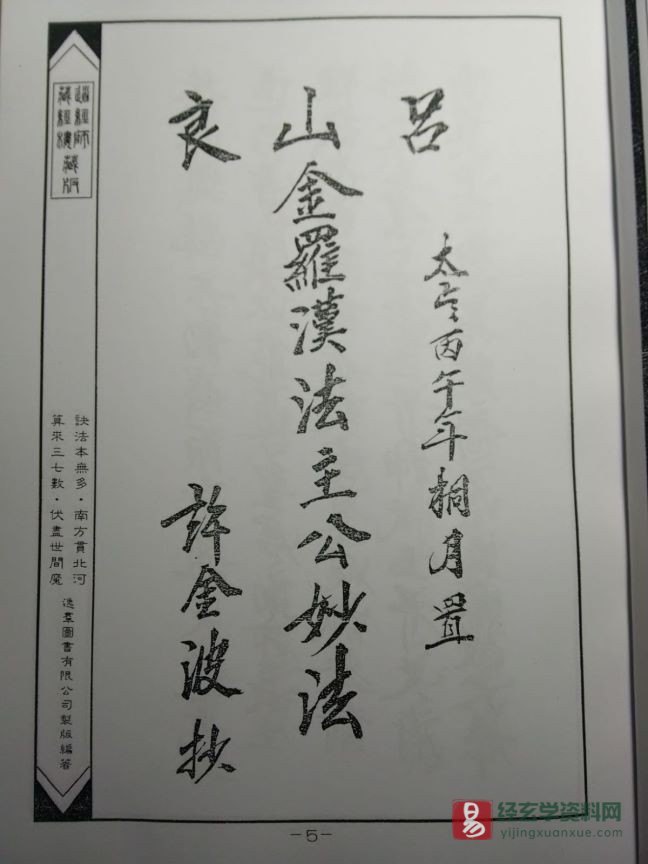 呂
太丙午年桐月置
山金羅漢法主公妙法
良
許金波抄
道經師
藏經樓
藏版
訣法本無多・南方貫北河
算來三七數・伏盡世間魔
逸羣圖書有限公司製版編著
-5-
易
经玄学资料网
yijingxuanxue.com